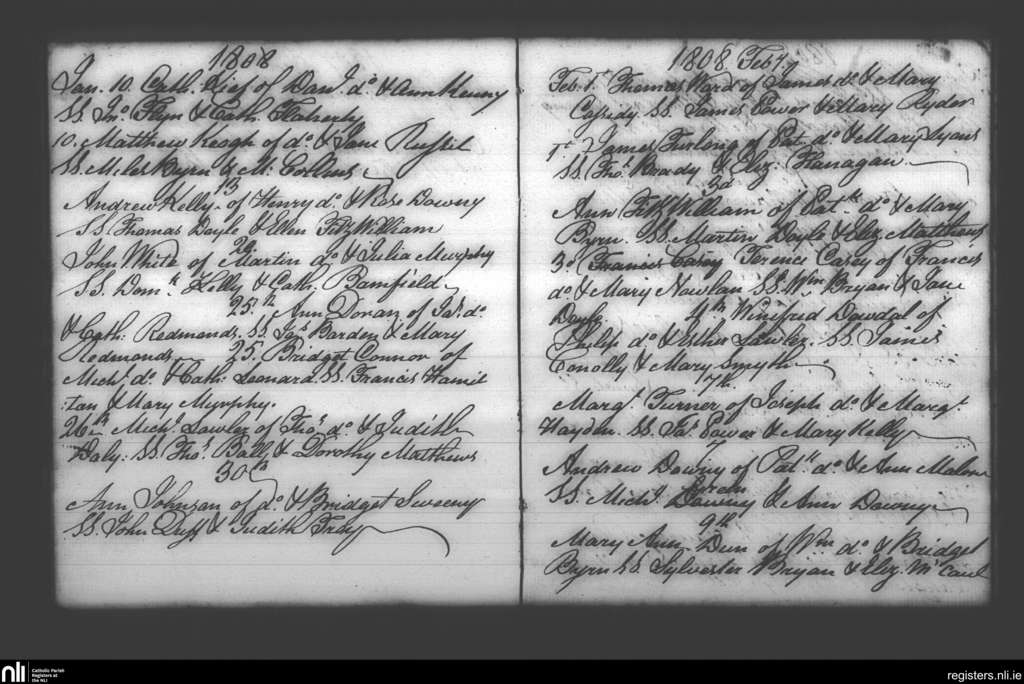 1808
Jan. 10. Cath. of Danl. do. & Ann Kenny
SS. Jno. Flyn & Cath. Flaherty
10. Matthew Keogh of do. & Jane Russil
SS. Miles Byrn & M. Collins
13
Andrew Kelly of Henry do. & Rose Downy
SS. Thomas Doyle & Ellen FitzWilliam
John White of Martin do. & Julia Murphy
SS. Domk. Kelly & Cath. Bamfield
25th Ann Doran of Jas. do.
& Cath. Redmond, SS. Jas. Barden & Mary
Redmond. 25. Bridget Connor of
Michl. do. & Cath. Leonard. SS. Francis Hamil
tan & Mary Murphy.
26th Michl. Lawler of Thos. do. & Judith
Daly. SS. Thos. Ball & Dorothy Matthews
30th
Ann Johnson of do. & Bridget Sweeny
SS. John Duff & Judith
1808 Feby.
Feb. 1st Thomas Ward of James do. & Mary
Cassidy. SS. James Power & Mary Ryder
1st James Furlong of Pat. do. & Mary Lyons
SS. Thos. Ready & Eliz. Flanagan
3d
Ann FitzWilliam of Patk. do. & Mary
Byrn. SS. Martin Doyle & Eliz. Matthews
3d Francis Casey Terence Casey of Francis
do. & Mary Nowlan SS. Wm. Bryan & Jane
Doyle. 4th Winifred Dowdal of
Philip do. & Esther Lawler. SS. James
Conolly & Mary Smyth
7th
Margt. Turner of Joseph do. & Margt.
Hayden. SS. Jas. Power & Mary Kelly
7
Andrew Downy of Patk. do. & Ann Malone
SS. Michl. Downy & Ann Downy
9th
Mary Ann Dun of Wm. do. & Bridget
Byrn SS. Sylvester Bryan & Eliz. McCaul
nli
Catholic Parish
Registers at
the NLI
registers.nli.ie